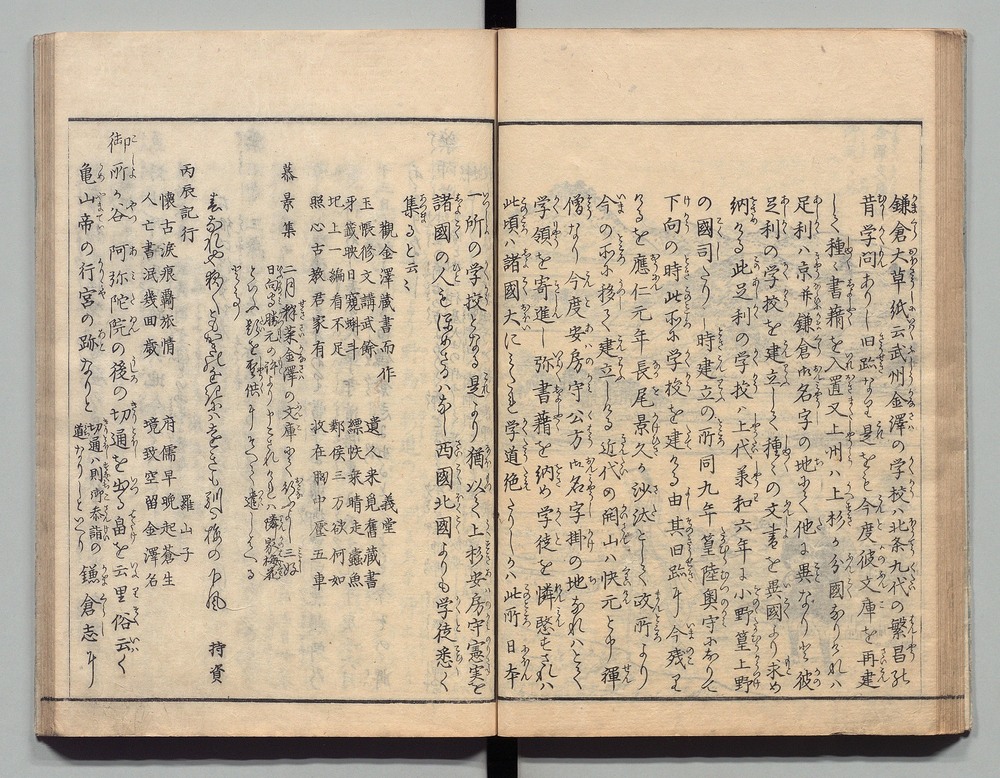 鎌倉大草紙云武州金澤の学校ハ北条九代の繁昌の
昔学問ありし旧跡なり是をも今度彼文庫を再建
して種々書籍を入置又上州ハ上杉が分國なりければ
足利ハ京并鎌倉御名字の地にて他に異なりと彼
足利の学校を建立して種々の文書を異國より求め
納める此足利の学校ハ上代承和六年に小野篁上野
の國司たりし時建立の所同九年篁陸奥守になりて
下向の時此所に学校を建ける由其旧跡于今残り
けるを應仁元年長尾景久が沙汰として政所より
今の所に移て建立しける近代の開山ハ快元と申禅
僧なり今度安房守公方御名字掛の地なればとて
学領を寄進し弥書籍を納め学徒を憐愍せされハ
此頃ハ諸國大にみだれ学道絶たりしかハ此所日本
一所の学校となる是より猶以て上杉安房守憲実を
諸國の人もほめざるハなし西國北國よりも学徒悉く
集ると云々
觀金澤藏書而作 義堂
玉帳修文講武餘 遺人来覓舊藏書
牙籤映日窺蝌斗 縹帙乗晴走蠹魚
圯上一編看不足 鄴侯三万欲何如
照心古教君家有 收在胸中壓五車
慕景集 二月釈菜金澤の文庫にて
持資
丙辰記行 羅山子
懐古涙痕羈旅情 府儒早晩起蒼生
人亡書泯幾回歳 境致空留金澤名
御所ヶ谷 阿弥陀院の後の切通を出る畠を云里俗云く
亀山帝の行宮の跡なりと 切通ハ則御参詣の道なりしといへり 鎌倉志ニ